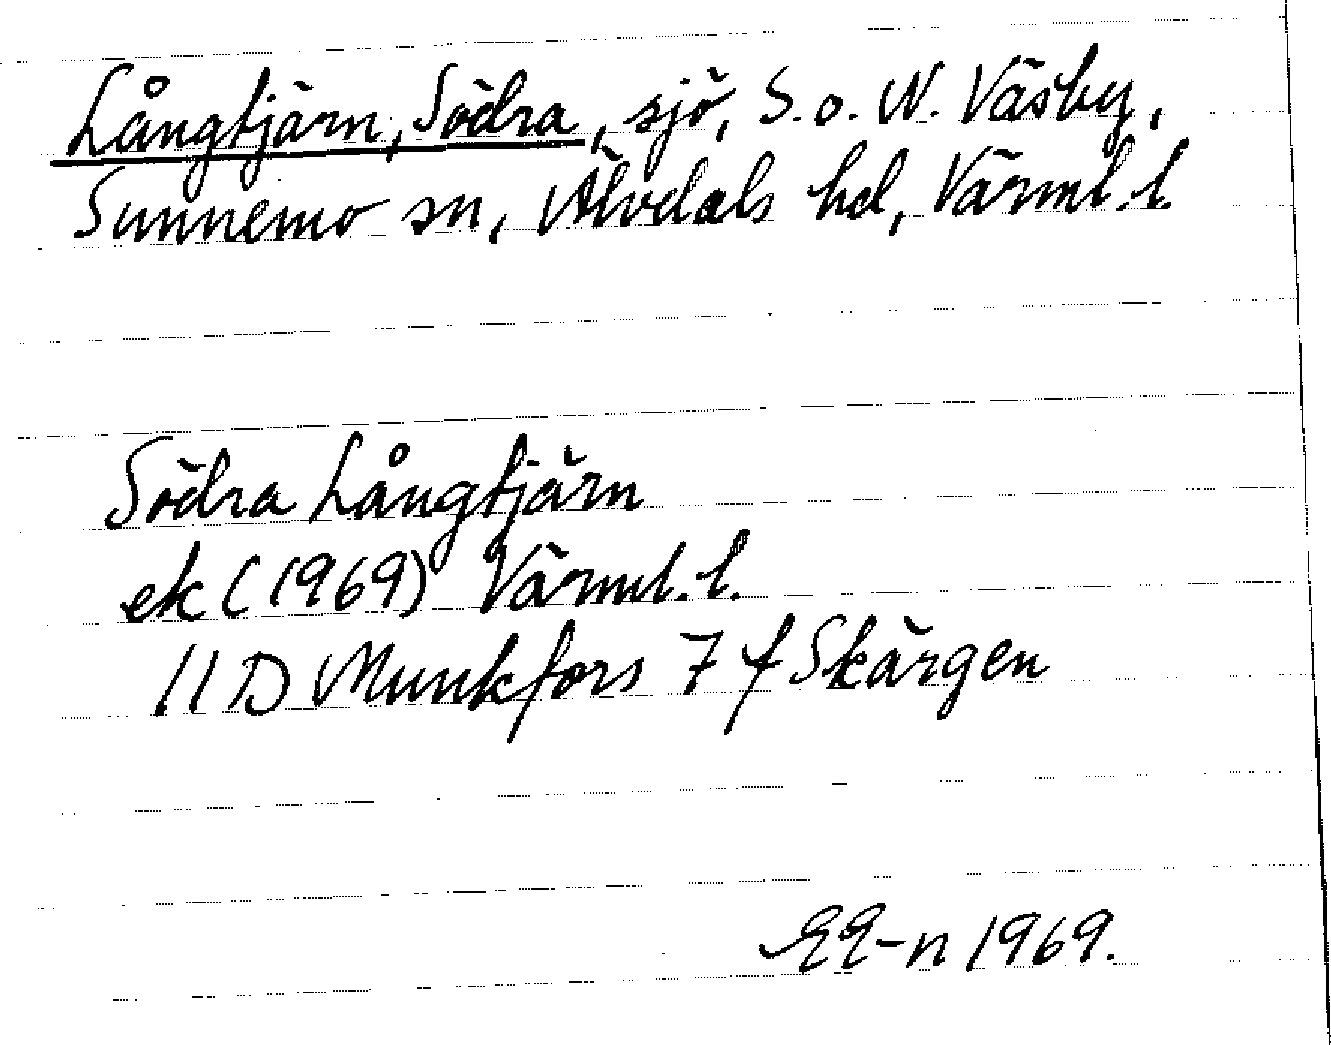 Långtjärn, Södra, sjö, S.o. N. Väsby,
Sunnemo sn, Älvdals hd, Värml.l.
Södra Långtjärn
ek (1969) Värml.l.
11 D Munkfors 7 f Skärgen
EE-n 1969.